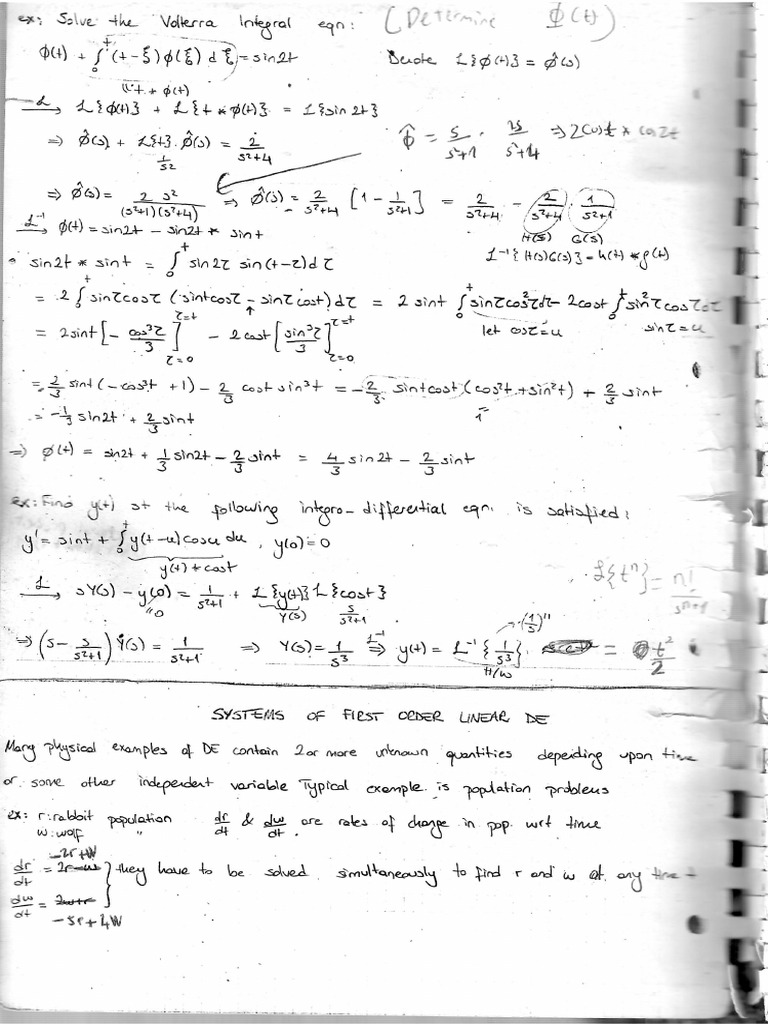 ex: Solve the Volterra Integral eqn: (Determine Φ(t))
ϕ(t) + ∫₀ᵗ (t-ξ) ϕ(ξ) dξ = sin2t Denote L{ϕ(t)} = ϕ̂(s)
t * ϕ(t)
L→ L{ϕ(t)} + L{t * ϕ(t)} = L{sin2t}
⇒ ϕ̂(s) + L{t}. ϕ̂(s) = 2/(s²+4) ϕ̂ = s/(s²+1) · 2s/(s²+4) ⇒ 2cost * cos2t
1/s²
⇒ ϕ̂(s) = 2s²/((s²+1)(s²+4)) ⇒ ϕ̂(s) = 2/(s²+4) [1 - 1/(s²+1)] = 2/(s²+4) - 2/(s²+4) · 1/(s²+1)
H(s) G(s)
L⁻¹→ ϕ(t) = sin2t - sin2t * sint L⁻¹{H(s)G(s)} = h(t) * g(t)
• sin2t * sint = ∫₀ᵗ sin2τ sin(t-τ) dτ
= 2 ∫₀ᵗ sinτcosτ (sintcosτ - sinτ cost) dτ = 2 sint ∫₀ᵗ sinτcos²τdτ - 2cost ∫₀ᵗ sin²τcosτdτ
let cosτ = u sinτ = u
= 2sint [- cos³τ/3]τ=0 τ=t - 2cost [sin³τ/3]τ=0 τ=t
= 2/3 sint (-cos³t + 1) - 2/3 cost sin³t = -2/3 sintcost (cos²t + sin²t) + 2/3 sint
1
= -1/3 sin2t + 2/3 sint
⇒ ϕ(t) = sin2t + 1/3 sin2t - 2/3 sint = 4/3 sin2t - 2/3 sint
ex: Find y(t) st the following integro-differential eqn. is satisfied:
y' = sint + ∫₀ᵗ y(t-u) cosu du, y(0)=0
y(t) * cost
L{tⁿ} = n!/sⁿ⁺¹
L→ sY(s) - y(0) = 1/(s²+1) + L{y(t)} L{cost}
"0 Y(s) s/(s²+1)
⇒ (s - s/(s²+1)) Y(s) = 1/(s²+1) ⇒ Y(s) = 1/s³ L⁻¹⇒ y(t) = L⁻¹{1/s³} = t²/2
(1/s)"
H/w
SYSTEMS OF FIRST ORDER LINEAR DE
Many physical examples of DE contain 2 or more unknown quantities depending upon time
or some other independent variable Typical example is population problems
ex: r: rabbit population dr/dt & dw/dt are rates of change in pop. wrt time
w: wolf "
-2r+w
dr/dt = 2r-w } they have to be solved simultaneously to find r and w at any time t
dw/dt =
-5r+4w